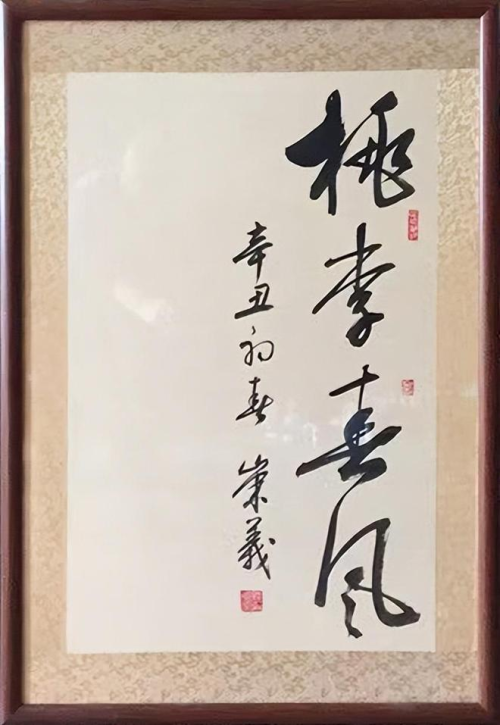 桃李春风
辛丑初春 崇义